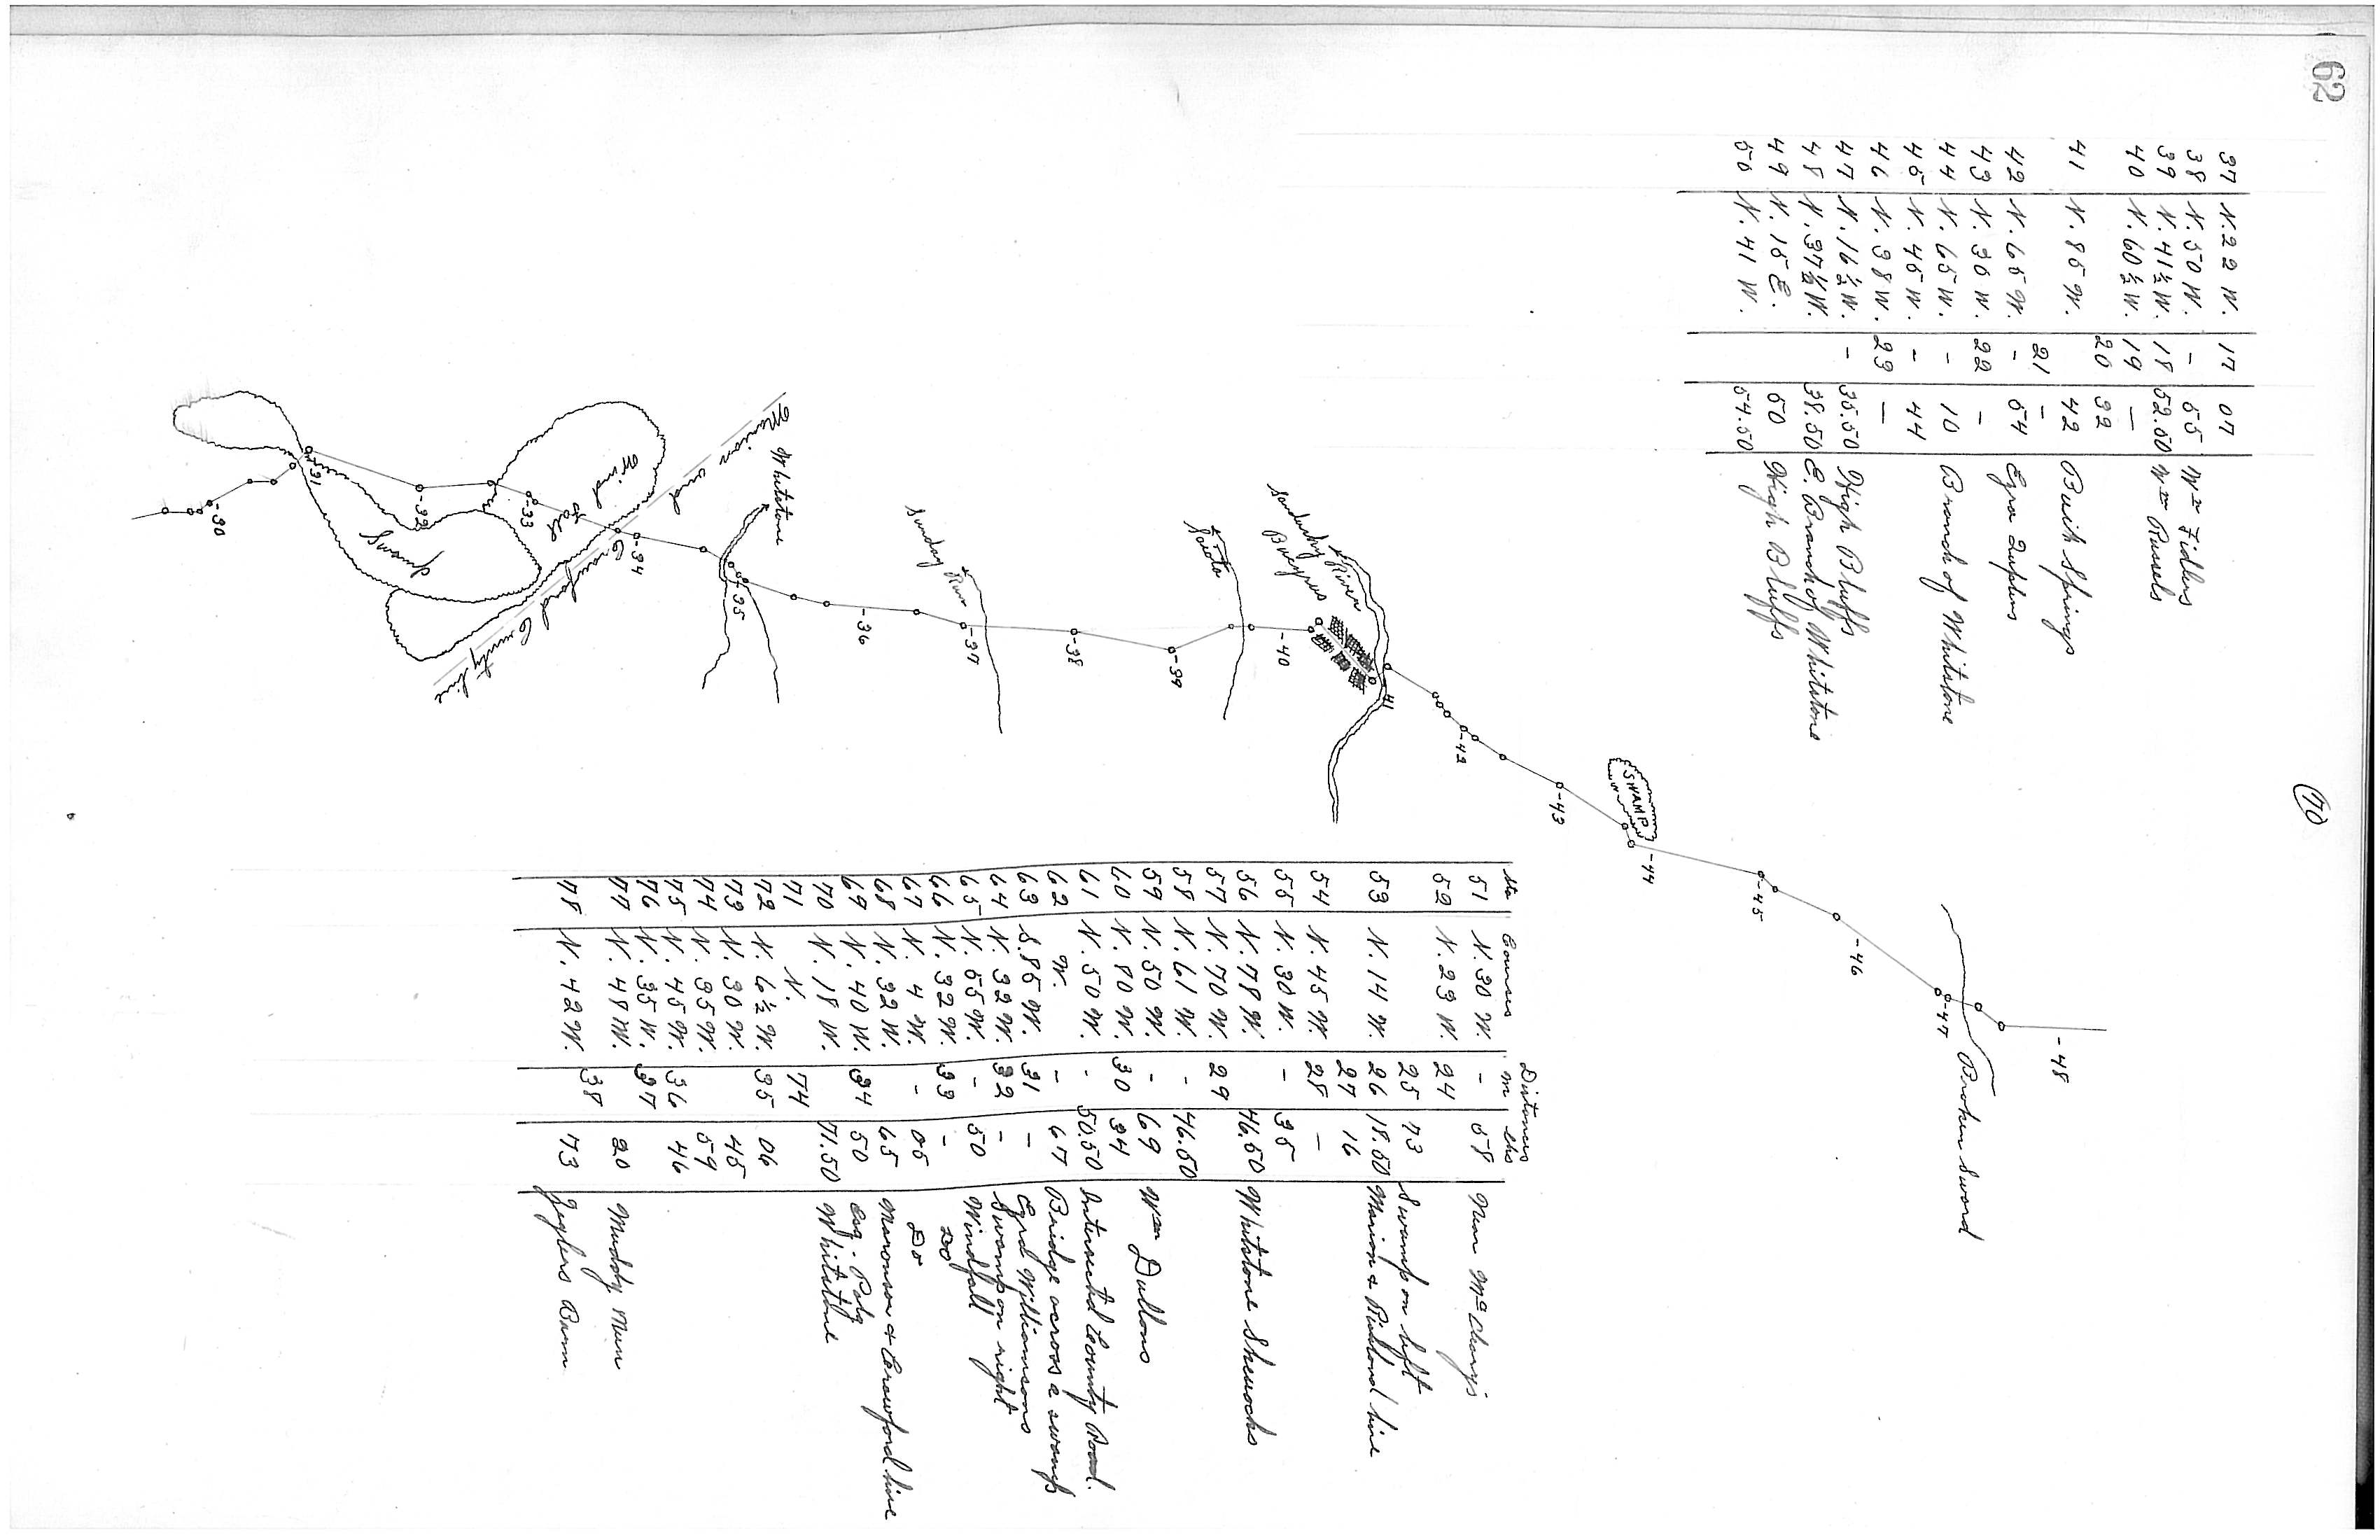 62
(70)
37 N. 22 W. 17 07
38 N. 50 W. - 55 Wm Fidlers
39 N. 41½ W. 18 52.50 Wm Russels
40 N. 60½ W. 19 -
20 32
41 N. 85 W. - 42 Buish Springs
21
42 N. 65 W. - 54 Ezra
43 N. 36 W. 22 -
44 N. 65 W. - 10 Branch of Whitstone
45 N. 45 W. - 44
46 N. 38 W. 23 -
47 N. 16½ W. - 35.50 High Bluffs
48 N. 37½ W. 38.50 E. Branch of Whitstone
49 N. 15 E. 50 High Bluffs
50 N. 41 W. 54.50
Sta Courses Distances
m chs
51 N. 30 W. - 58 Near
52 N. 23 W. 24
25 73 Swamp on left
53 N. 14 W. 26 18.50 Marion & Richland line
27 16
54 N. 45 W. 28 -
55 N. 30 W. - 35
56 N. 78 W. 46.50 Whitstone
57 N. 70 W. 29
58 N. 61 W. - 46.50
59 N. 50 W. - 69 Wm Dullons
60 N. 80 W. 30 34
61 N. 50 W. - 50.50 Intersected County Road.
62 W. - 67 Bridge across a swamp
63 S. 85 W. 31 - Cyrd Williamsons
64 N. 32 W. 32 - Swamp on right
65 N. 55 W. - 50 Windfall
66 N. 32 W. 33 - Do
67 N. 4 W. - 05 Do
68 N. 32 W. 65 Maronson & Crawford line
69 N. 40 W. 34 50
70 N. 18 W. 71.50 Whitstone
71 N. 74
72 N. 6½ W. 35 06
73 N. 30 W. 45
74 N. 35 W. 59
75 N. 45 W. 36 46
76 N. 35 W. 37
77 N. 48 W. 20 Muddy Run
78 N. 42 W. 38 73 Zeglers Barn
-48
Broken Sword
-47
-46
-45
-44
SWAMP
-43
-42
41
Sandusky River
Bucyrus
-40
Sciota
-39
-38
-37
Sunday Run
-36
-35
Whitstone
-34
Marion and Crawford County line
Wind fall
-33
-32
Swamp
31
-30